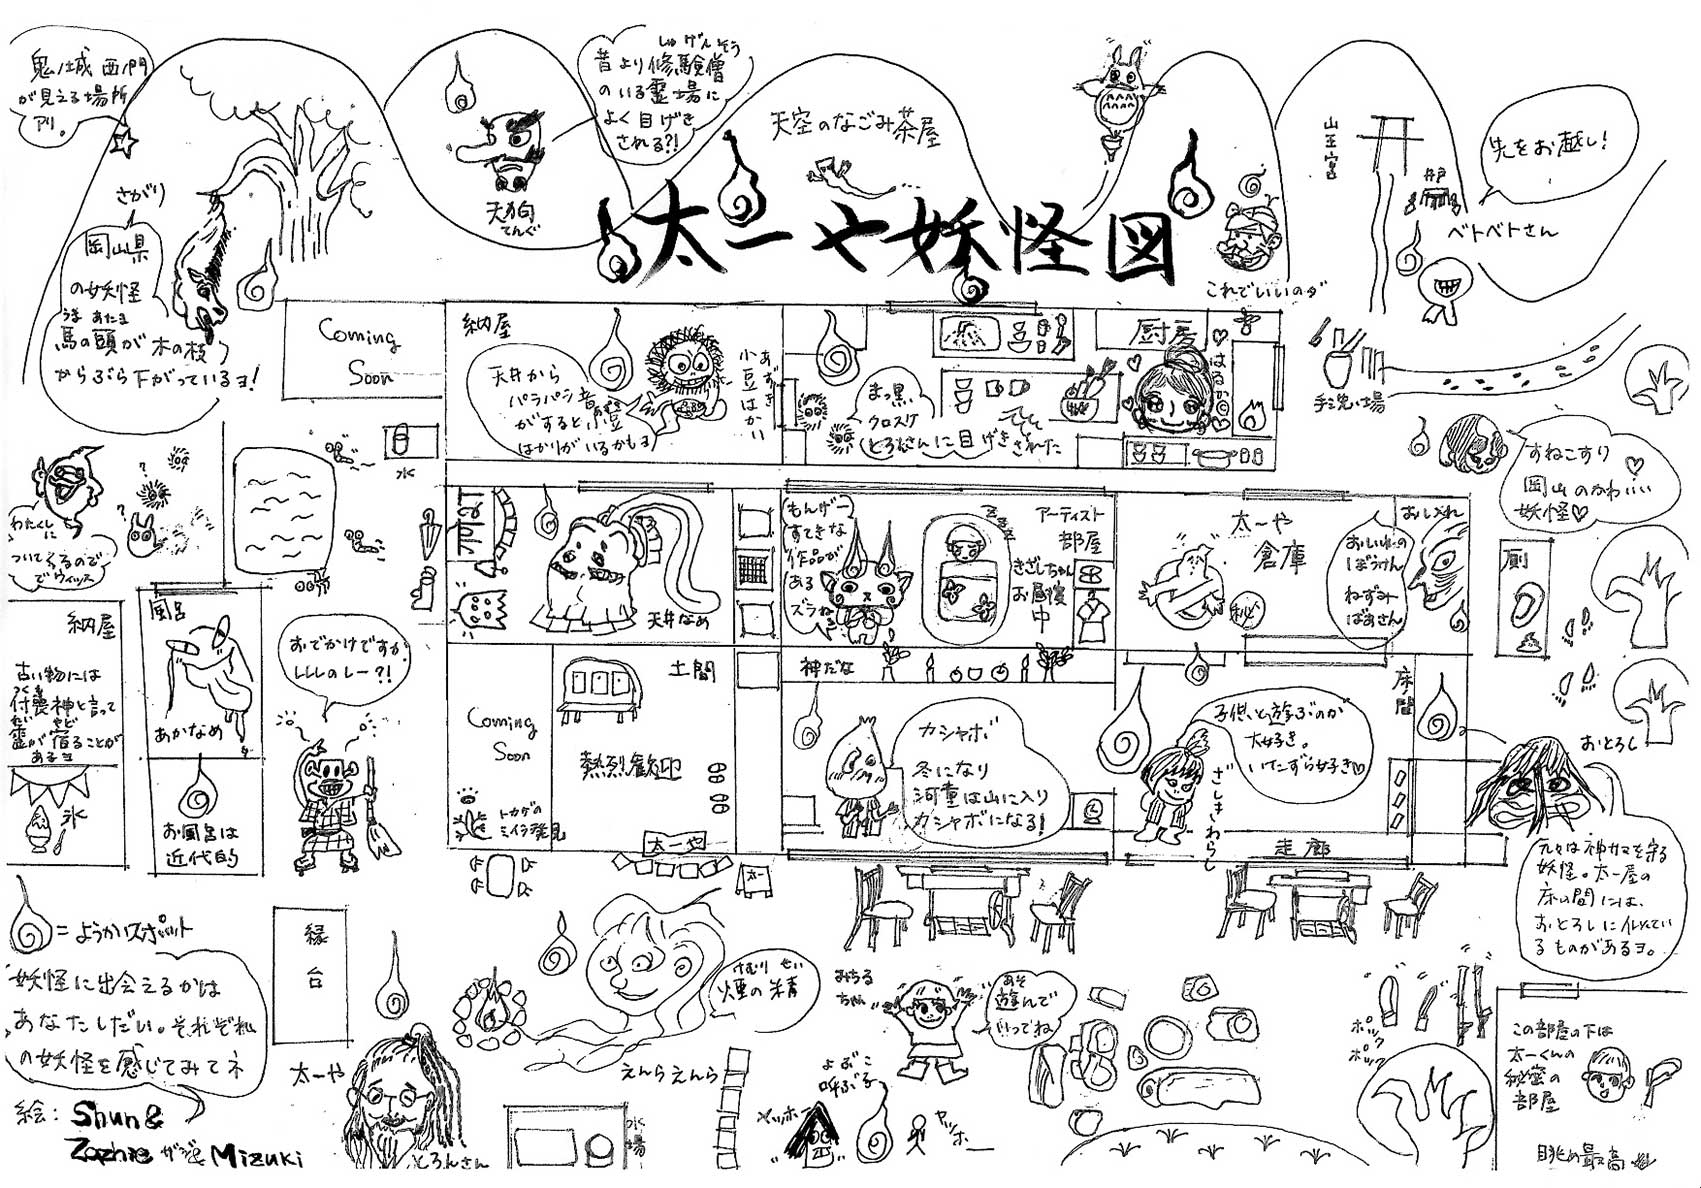 鬼ノ城 西門
が見える場所
アリ。
さがり
岡山県
の妖怪
うま あたま
馬の頭が木の枝
からぶら下がっているヨ!
天狗
てんぐ
しゅげんそう
昔より修験僧
のいる霊場に
よく目げき
される?!
天空のなごみ茶屋
太一や妖怪図
これでいいのダ
山王宮
井戸
先をお越し!
ベトベトさん
手洗い場
Coming
Soon
納屋
天井から
パラパラ音
がすると小豆
はかりがいるかもヨ
あずき
小豆はかい
まっ黒
クロスケ
とろんさんに目げきされた
厨房
はるか
すねこすり
岡山のかわいい
妖怪♡
わたくしに
ついてくるので
でウィッス
氷
天井なめ
もんげー
すてきな
作品が
ある
ズラねー
アーティスト
部屋
きざしちゃん
お昼寝
中
太一や
倉庫
秘
おしいれ
おしいれの
ぼうけん
ねずみ
ばあさん
厠
納屋
古い物には
付喪神と言って
霊が宿ることが
あるヨ
氷
風呂
あかなめ
お風呂は
近代的
おでかけですか
レレレのレー?!
Coming
Soon
トカゲの
ミイラ発見
土間
熱烈歓迎
太一や
神だな
カシャボ
冬になり
河童は山に入り
カシャボになる!
子供と遊ぶのが
大好き。
いたずら好き♡
ざしきわらし
床間
走廊
おとろし
元々は神サマを守る
妖怪。太一屋の
床の間には、
おとろしに似ている
ものがあるヨ。
=ようかいスポット
妖怪に出会えるかは
あなたしだい。それぞれ
の妖怪を感じてみてネ
絵: Shun &
Zophie ザジ Mizuki
縁台
太一や
とろんさん
けむり せい
煙の精
えんらえんら
太一
水場
みちる
ちゃん
あそ
遊んで
いってね
よぶこ
呼ぶ子
ヤッホー
ヤッホー
ポック
ポック
この部屋の下は
太一くんの
秘密の
部屋
眺め最高